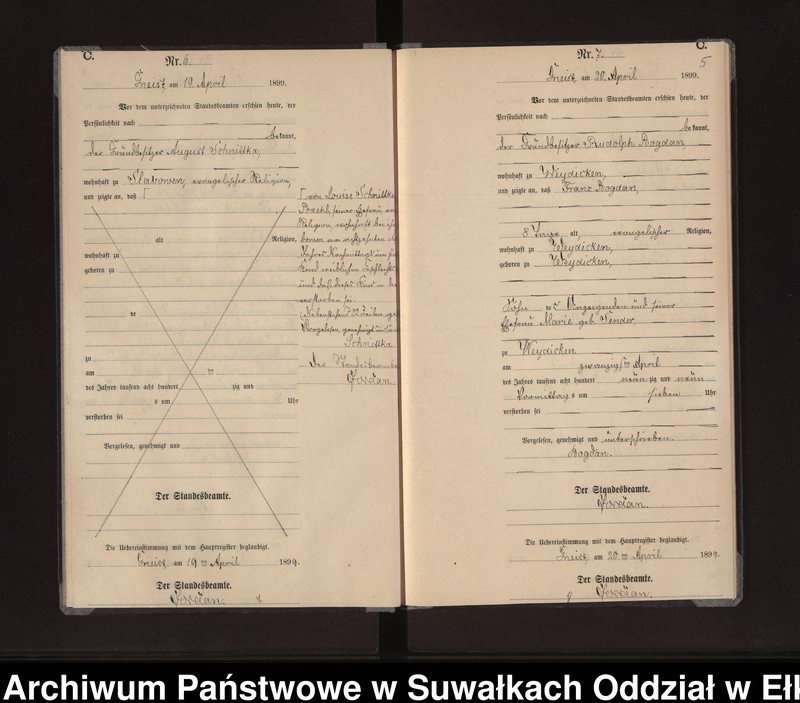 C.
Nr. 6.
Gneist, am 19. April 1899.
Vor dem unterzeichneten Standesbeamten erschien heute, der
Persönlichkeit nach
bekannt,
der Grundbesitzer August Schnittka,
wohnhaft zu Slabowen, evangelischer Religion,
und zeigte an, daß
alt Religion,
wohnhaft zu
geboren zu
de
zu
am ten
des Jahres tausend acht hundert zig und
s um Uhr
verstorben sei
Vorgelesen, genehmigt und
Der Standesbeamte.
Die Uebereinstimmung mit dem Hauptregister beglaubigt.
Gneist, am 19 ten April 1899.
Der Standesbeamte.
von Louise Schnittka
seiner Ehefrau,
Religion, wohnhaft bei
Jahres Nachmittags um
Kind weiblichen
und daß dieses Kind in
verstorben sei.
Vorgelesen, genehmigt und
Schnittka
Der Standesbeamte
C.
5
Nr. 7.
Gneist, am 20. April 1899.
Vor dem unterzeichneten Standesbeamten erschien heute, der
Persönlichkeit nach
bekannt,
der Grundbesitzer Rudolph Bogdan,
wohnhaft zu Weydicken,
und zeigte an, daß Franz Bogdan,
8 Tage alt, evangelischer Religion,
wohnhaft zu Weydicken,
geboren zu Weydicken,
Sohn des Anzeigenden und seiner
Ehefrau Marie geb.
zu Weydicken
am zwanzigsten April
des Jahres tausend acht hundert neun zig und neun
Vormittags um sieben Uhr
verstorben sei
Vorgelesen, genehmigt und unterschrieben.
Bogdan.
Der Standesbeamte.
Die Uebereinstimmung mit dem Hauptregister beglaubigt.
Gneist, am 20 ten April 1899.
Der Standesbeamte.
Archiwum Państwowe w Suwałkach Oddział w Ełk